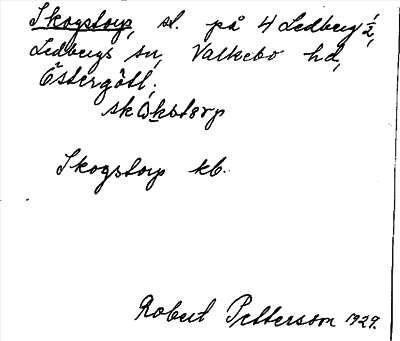 Skogstorp, sl. på 4 Ledberg 1/2,
Ledbergs sn, Valkebo hd,
Östergötl;
Skogstorp kb.
Robert Pettersson 1929.